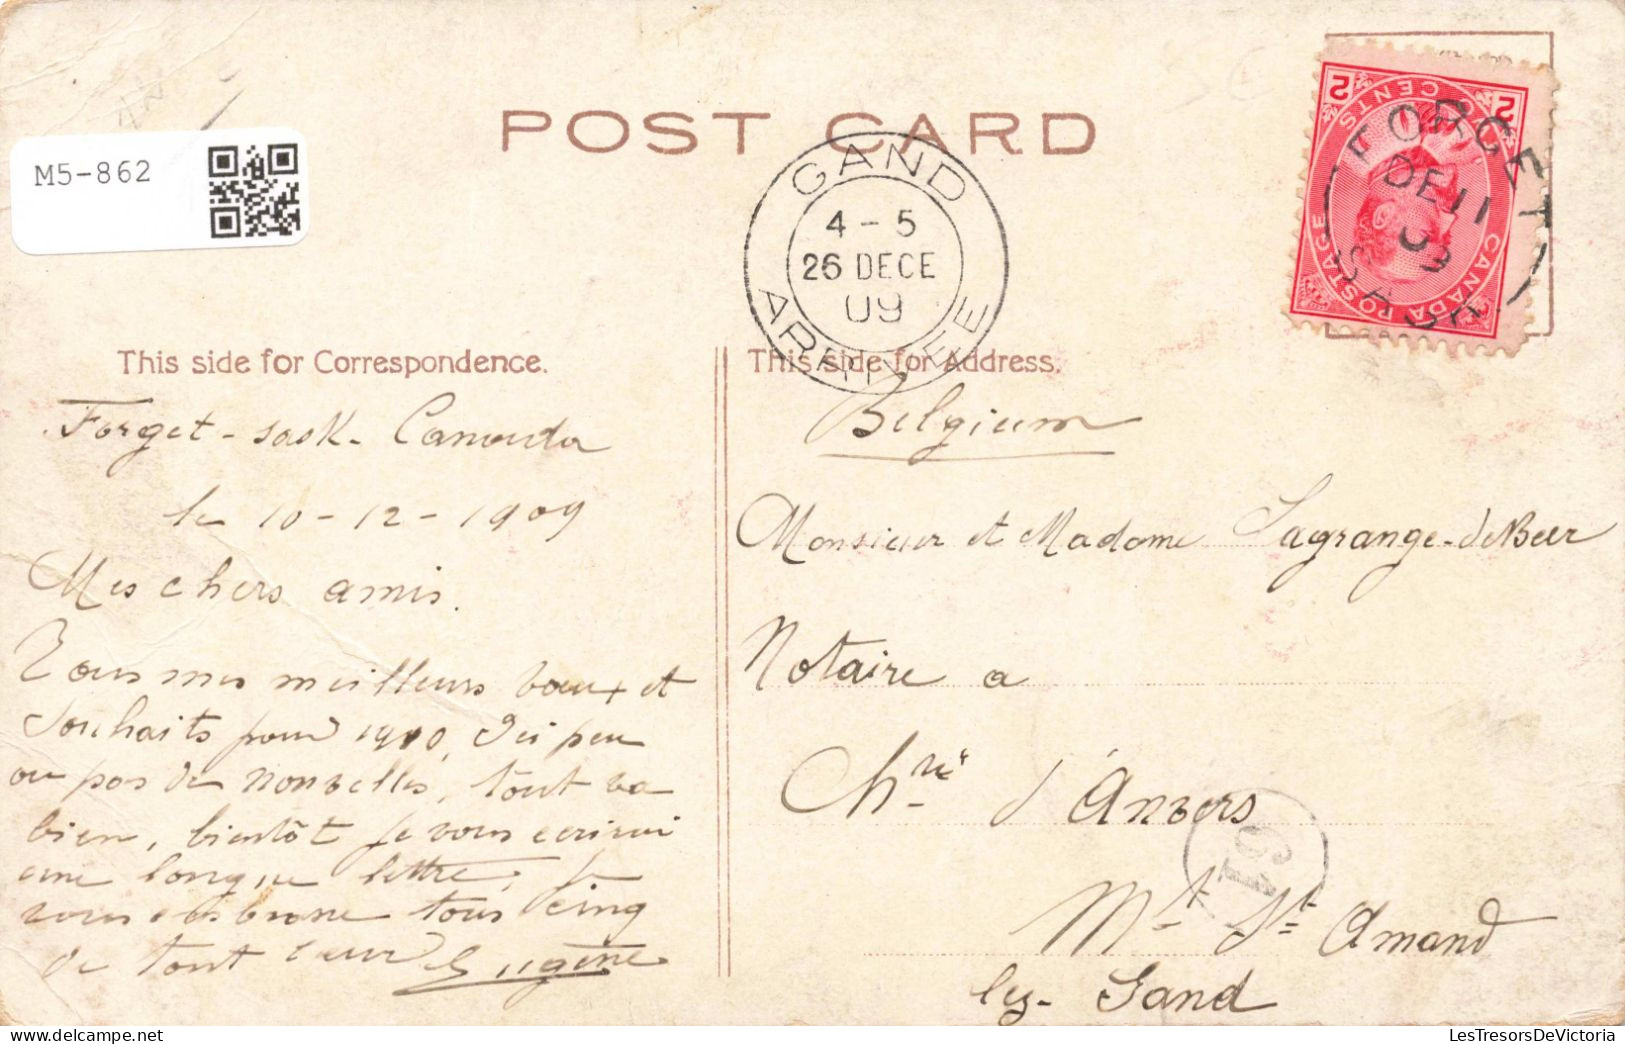 POST CARD
M5-862
GAND
4 - 5
26 DECE
09
ARRIVEE
FORGET
DE 11
09
SASK
2 CENTS 2
CANADA POSTAGE
This side for Correspondence.
Forget - Sask - Canada
le 10 - 12 - 1909
Mes chers amis.
Tous mes meilleurs vœux et
souhaits pour 1910, d'ici peu
ou pas de nouvelles, tout va
bien, bientôt je vous ecrirai
une longue lettre, je
vous embrasse tous cinq
de tout cœur Eugène
This side for Address.
Belgium
Monsieur et Madame Lagrange-DeBeer
Notaire a
Ch d'Anvers
19
Mt St Amand
lez - Gand
LesTresorsDeVictoria
delcampe.net